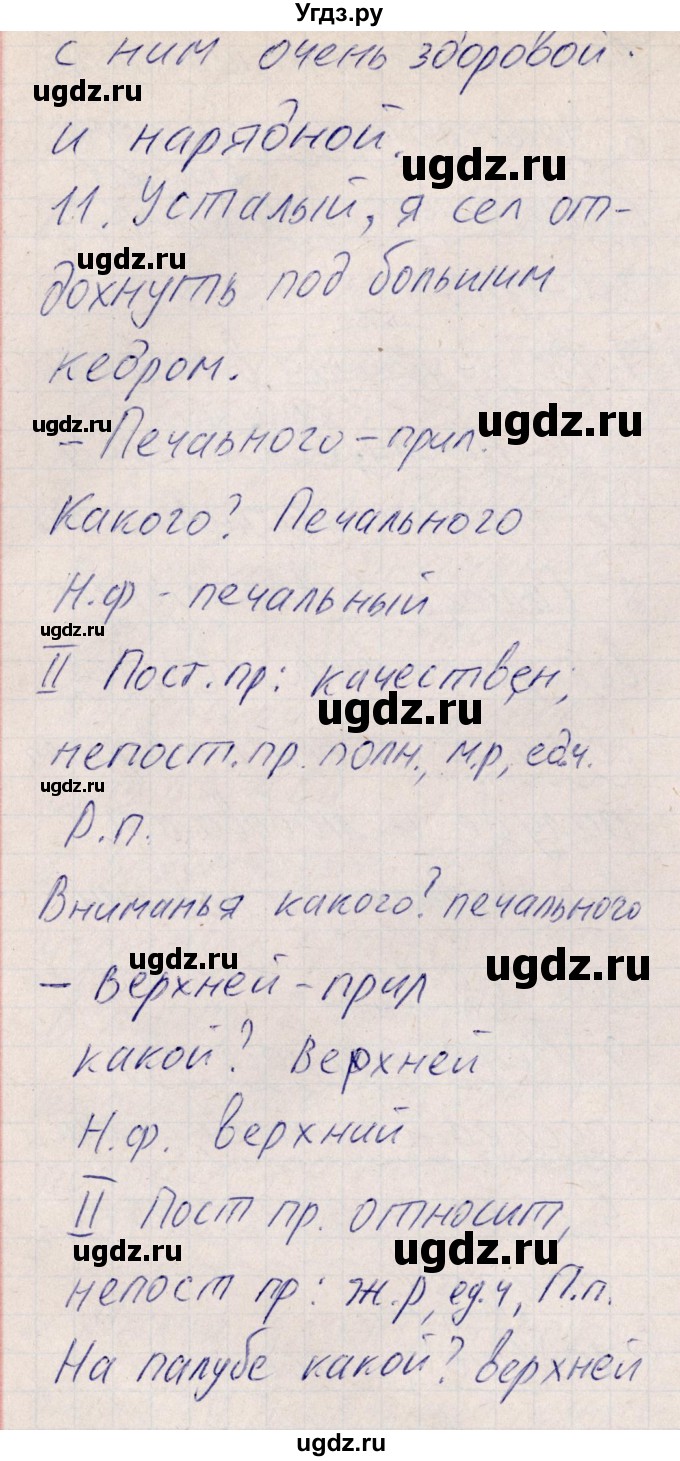 Угдз.ру
с ним очень здоровой
ugdz.ru
и нарядной.
ugdz.ru
11. Усталый, я сел от-
ugdz.ru
дохнуть под большим
кедром.
ugdz.ru
ugdz.ru
– Печаьного – прил.
Какого? Печального
Н.ф – печальный
ugdz.ru
II Пост. пр: качествен,
ugdz.ru
непост. пр. полн., м.р, ед.ч.
ugdz.ru
Р.п.
Вниманья какого? печального
ugdz.ru
ugdz.ru
– Верхней – прил
какой? Верхней
Н.ф. верхний
II Пост пр. относит,
ugdz.ru
ugdz.ru
непост пр: ж.р, ед.ч, П.п.
На палубе какой? верхней
ugdz.ru